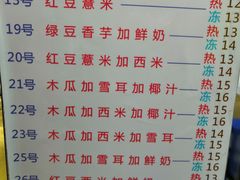 15号 红豆薏米 热 12
冻 13
19号 绿豆香芋加鲜奶 热 13
冻 14
20号 红豆薏米加西米 热 12
冻 13
21号 木瓜加雪耳加椰汁 热 14
冻 15
22号 木瓜加西米加椰汁 热 15
冻 16
23号 木瓜加西米加雪耳 热 13
冻 14
25号 木瓜加雪耳加鲜奶 热 15
冻 16